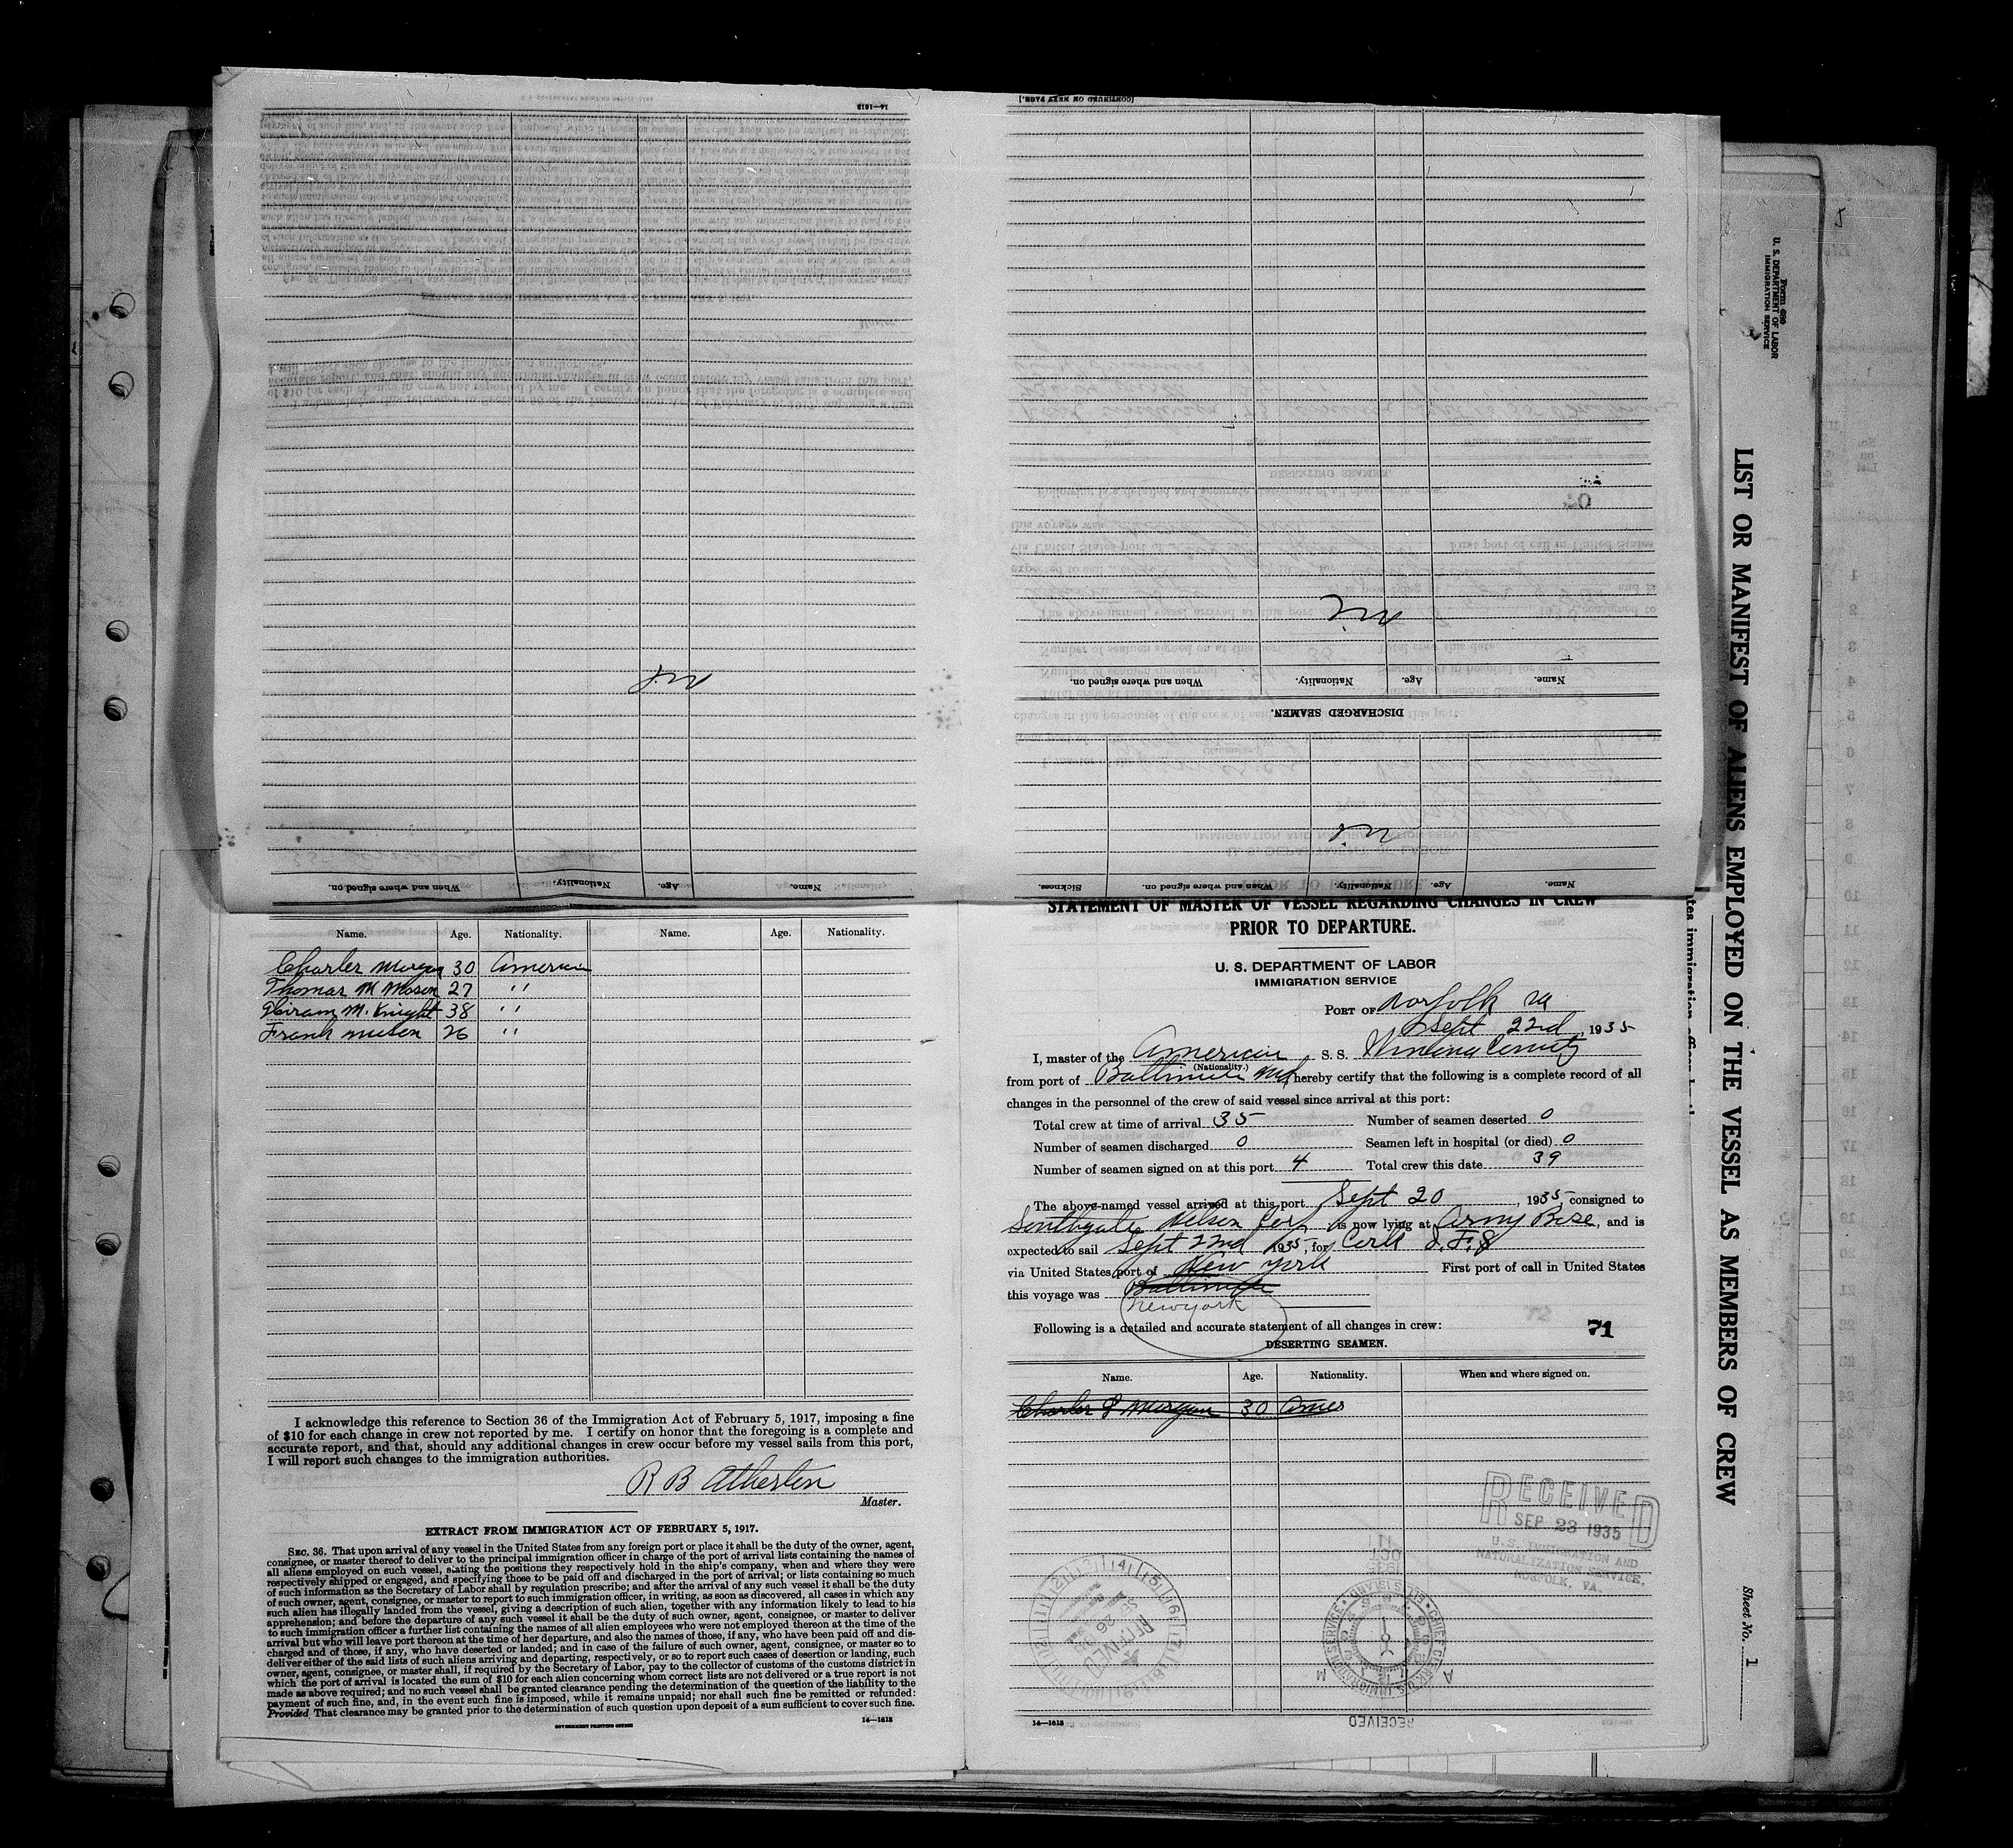 14—1613
[CONTINUED ON NEXT PAGE.]
Name. Age. Nationality. When and where signed on.
DISCHARGED SEAMEN.
Name. Age. Nationality. When and where signed on.
Name. Age. Nationality. When and where signed on. Sickness.
Form 689
U. S. DEPARTMENT OF LABOR
IMMIGRATION SERVICE
5
LIST OR MANIFEST OF ALIENS EMPLOYED ON THE VESSEL AS MEMBERS OF CREW
Sheet No. 1
Name. Age. Nationality. Name. Age. Nationality.
Charles Morgan 30 American
Thomas M Mason 27 ''
Hiram M. Knight 38 ''
Frank 26 ''
I acknowledge this reference to Section 36 of the Immigration Act of February 5, 1917, imposing a fine
of $10 for each change in crew not reported by me. I certify on honor that the foregoing is a complete and
accurate report, and that, should any additional changes in crew occur before my vessel sails from this port,
I will report such changes to the immigration authorities.
R B Atherton
Master.
EXTRACT FROM IMMIGRATION ACT OF FEBRUARY 5, 1917.
SEC. 36. That upon arrival of any vessel in the United States from any foreign port or place it shall be the duty of the owner, agent,
consignee, or master thereof to deliver to the principal immigration officer in charge of the port of arrival lists containing the names of
all aliens employed on such vessel, stating the positions they respectively hold in the ship's company, when and where they were
respectively shipped or engaged, and specifying those to be paid off and discharged in the port of arrival; or lists containing so much
of such information as the Secretary of Labor shall by regulation prescribe; and after the arrival of any such vessel it shall be the duty
of such owner, agent, consignee, or master to report to such immigration officer, in writing, as soon as discovered, all cases in which any
such alien has illegally landed from the vessel, giving a description of such alien, together with any information likely to lead to his
apprehension; and before the departure of any such vessel it shall be the duty of such owner, agent, consignee, or master to deliver
to such immigration officer a further list containing the names of all alien employees who were not employed thereon at the time of the
arrival but who will leave port thereon at the time of her departure, and also the names of those, if any, who have been paid off and dis-
charged and of those, if any, who have deserted or landed; and in case of the failure of such owner, agent, consignee, or master so to
deliver either of the said lists of such aliens arriving and departing, respectively, or so to report such cases of desertion or landing, such
owner, agent, consignee, or master shall, if required by the Secretary of Labor, pay to the collector of customs of the customs district in
which the port of arrival is located the sum of $10 for each alien concerning whom correct lists are not delivered or a true report is not
made as above required; and no such vessel shall be granted clearance pending the determination of the question of the liability to the
payment of such fine, and, in the event such fine is imposed, while it remains unpaid; nor shall such fine be remitted or refunded:
Provided, That clearance may be granted prior to the determination of such question upon deposit of a sum sufficient to cover such fine.
GOVERNMENT PRINTING OFFICE
14—1613
STATEMENT OF MASTER OF VESSEL REGARDING CHANGES IN CREW
PRIOR TO DEPARTURE.
U. S. DEPARTMENT OF LABOR
IMMIGRATION SERVICE
PORT OF Norfolk Va
Sept 22nd, 1935
I, master of the American S. S. Winona County
(Nationality.)
from port of Baltimore Md hereby certify that the following is a complete record of all
changes in the personnel of the crew of said vessel since arrival at this port:
Total crew at time of arrival 35 Number of seamen deserted 0
Number of seamen discharged 0 Seamen left in hospital (or died) 0
Number of seamen signed on at this port 4 Total crew this date 39
The above-named vessel arrived at this port Sept 20, 1935 consigned to
Southgate Nelson Cor is now lying at Army Base, and is
expected to sail Sept 22nd 1935, for Cork I. F. S
via United States port of New York First port of call in United States
this voyage was Baltimore
New York
Following is a detailed and accurate statement of all changes in crew:
71
DESERTING SEAMEN.
Name. Age. Nationality. When and where signed on.
Charles J Morgan 30 Amer
RECEIVED
SEP 23 1935
U. S. IMMIGRATION AND
NATURALIZATION SERVICE,
NORFOLK, VA.
RECEIVED
CHIEF CLERK U.S. IMMIGRATION SERVICE • ELLIS ISLAND
RECEIVED
14—1613